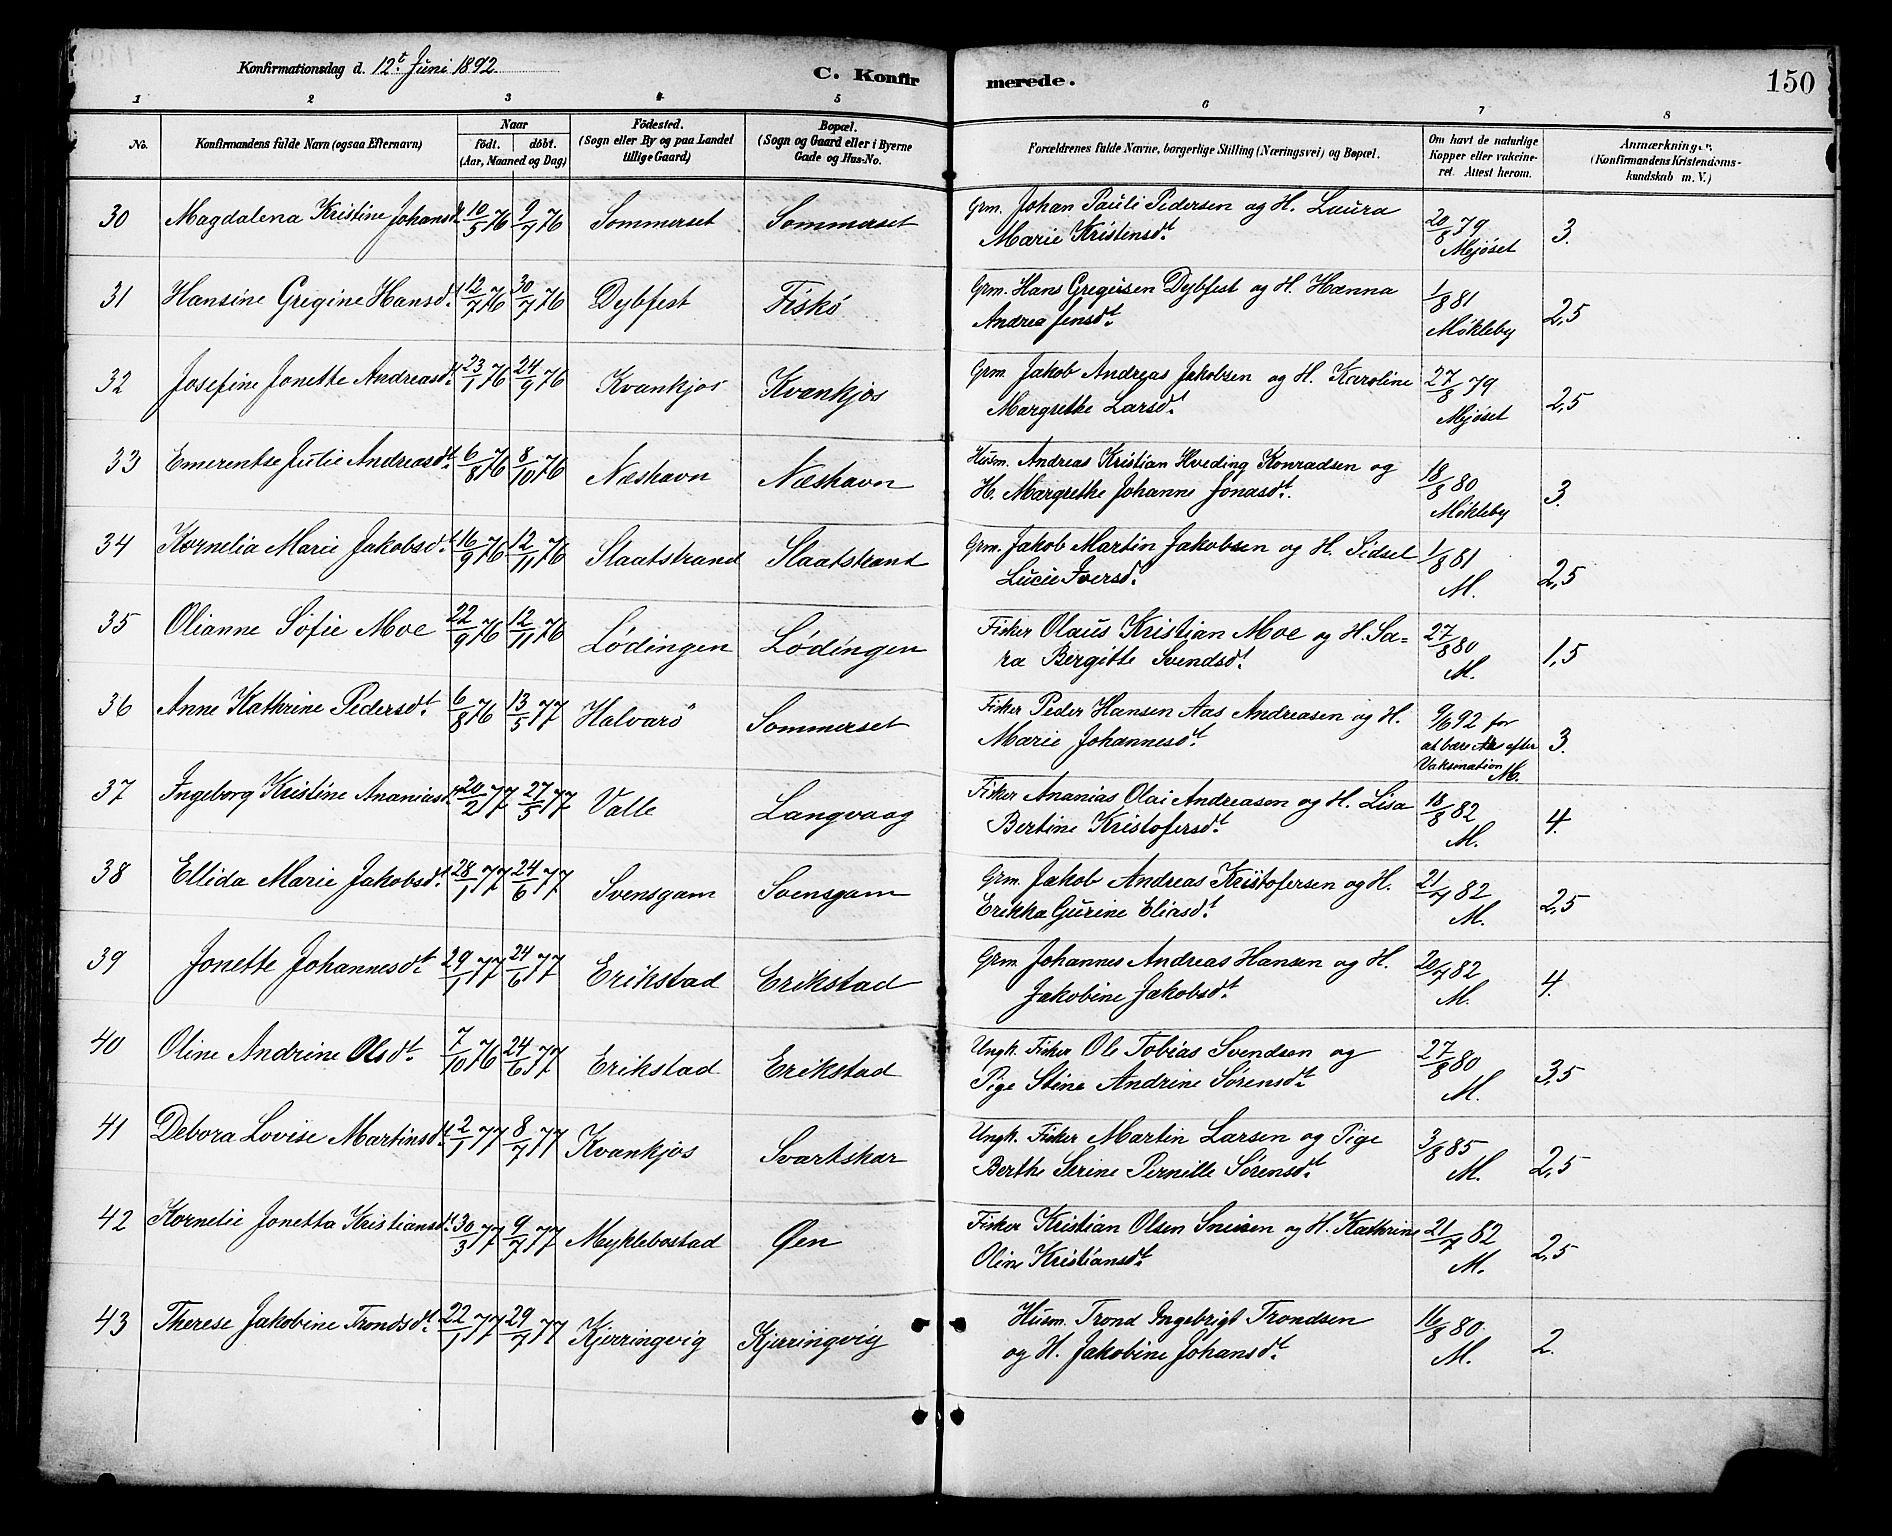 Konfirmationsdag d. 12t Juni 1892
C. Konfirmerede.
150
1 2 3 4 5 6 7 8
No. Konfirmandens fulde Navn (ogsaa Efternavn) Naar födt. döbt. (Aar, Maaned og Dag) Födested. (Sogn eller By og paa Landet tillige Gaard) Bopæl. (Sogn og Gaard eller i Byerne Gade og Hus-No. Forældrenes fulde Navne, borgerlige Stilling (Næringsvei) og Bopæl. Om havt de naturlige Kopper eller vakcineret. Attest herom. Anmærkninger. (Konfirmandens Kristendomskundskab m. V.)
30 Magdalena Kristine Johansdt 10/5 76 9/7 76 Sommerset Sommerset Grm. Johan Pauli Pedersen og H. Laura 20/8 79 3.
Marie Kristensdt. Mejöset
31 Hansine Gregine Hansdt. 12/7 76 30/7 76 Dybfest Fiskö Grm. Hans Gregersen Dybfest og H. Hanna 1/8 81 2,5
Andrea Jensdt. Møkleby
32 Josefine Jonette Andreasdt. 23/1 76 24/9 76 Kvankjos Kvankjos Grm Jakob Andreas Jakobsen og H. Karoline 27/8 79 2,5
Margrethe Larsdt. Mejöset
33 Emerentse Julie Andreasdt. 6/8 76 8/10 76 Næshavn Næshavn Husm. Andreas Kristian Hveding Konradsen og 18/8 80 3.
H. Margrethe Johanne Jonasdt. Møkleby
34 Kornelia Marie Jakobsdt. 16/9 76 12/11 76 Slaatstrand Slaatstrand Grm. Jakob Martin Jakobsen og H. Sidsel 1/8 81 2,5
Lucie Iversdt. M.
35 Olianne Sofie Moe 22/9 76 12/11 76 Lødingen Lødingen Fisker Olaus Kristian Moe og H. Sa= 27/8 80 1,5
ra Bergitte Svendsdt. M.
36 Anne Kathrine Pedersdt. 6/8 76 13/5 77 Halvarö Sommerset Fisker Peder Hansen Aas Andreasen og H. 9/6 92 for 3.
Marie Johannesdt. at bære Ar efter
Vaksination M.
37 Ingeborg Kristine Ananiasdt. 20/2 77 27/5 77 Valle Langvaag Fisker Ananias Olai Andreasen og H. Lisa 18/8 82 4.
Bertine Kristofersdt. M.
38 Ellida Marie Jakobsdt. 28/1 77 24/6 77 Svensgam Svensgam Grm. Jakob Andreas Kristofersen og H. 21/7 82 2,5
Erikka Gurine Eliasdt. M.
39 Jonette Johannesdt. 29/1 77 24/6 77 Erikstad Erikstad Grm Johannes Andreas Hansen og H. 20/7 82 4.
Jakobine Jakobsdt. M.
40 Oline Andrine Olsdt. 7/10 76 24/6 77 Erikstad Erikstad Ungk. Fisker Ole Tobias Svendsen og 27/8 80 3,5
Pige Stine Andrine Sørensdt. M.
41 Debora Lovise Martinsdt. 2/1 77 8/7 77 Kvankjos Svartskar Ungk. Fisker Martin Larsen og Pige 3/8 85 2,5
Berthe Serine Pernille Sørensdt. M.
42 Kornelie Jonetta Kristiansdt. 30/3 77 9/7 77 Myklebostad Øen Fisker Kristian Olsen Sneisen og H. Kathrine 21/7 82 2,5
Oline Kristiansdt. M.
43 Therese Jakobine Trondsdt. 22/1 77 29/7 77 Kjerringvig Kjerringvig Husm. Trond Ingebrigt Trondsen 16/8 80. 2.
og H. Jakobine Johansdt. M.